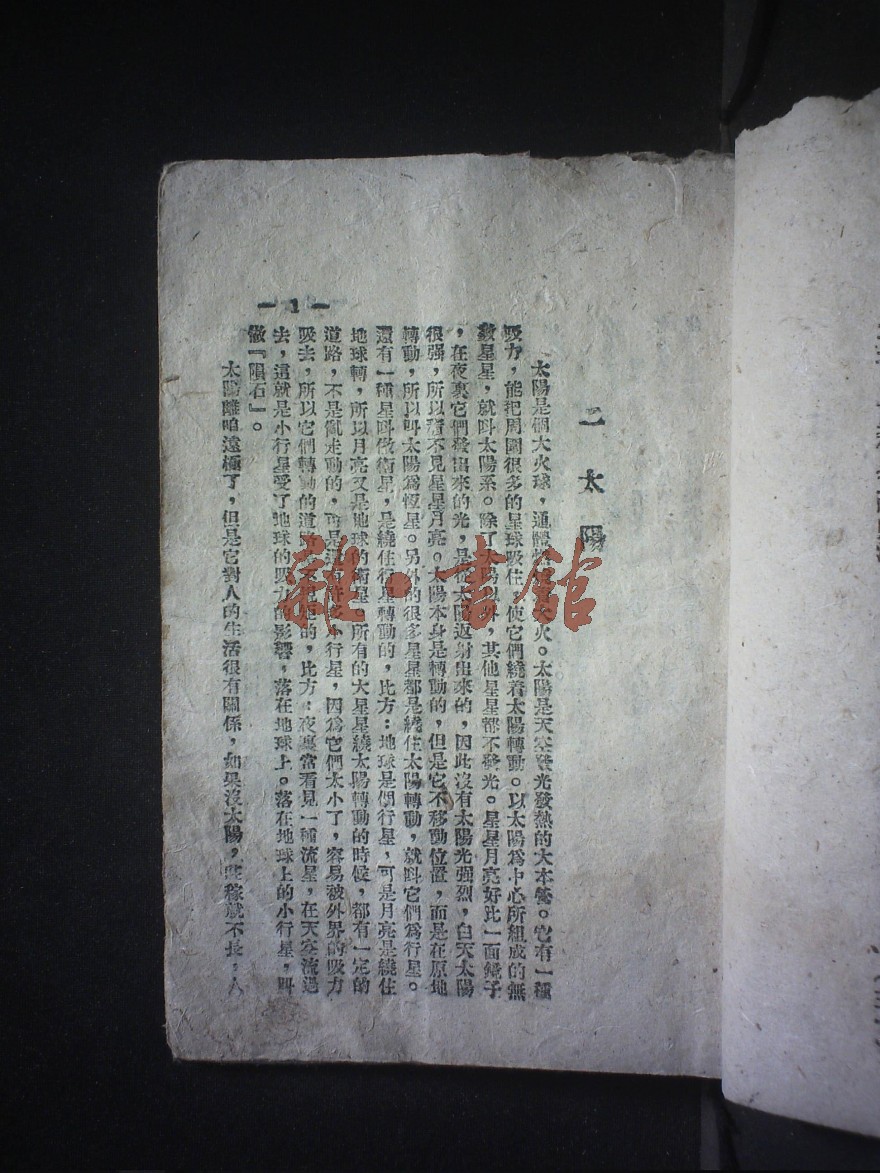 二 太 陽
太陽是個大火球，通體燃燒着大火。太陽是天空發光發熱的大本營。它有一種
吸力，能把周圍很多的星球吸住，使它們繞着太陽轉動。以太陽爲中心所組成的無
數星星，就叫太陽系。除了太陽以外，其他星星都不發光。星星月亮好比一面鏡子
，在夜裏它們發出來的光，是從太陽返射出來的，因此沒有太陽光强烈，白天太陽
很强，所以看不見星星月亮。太陽本身是轉動的，但是它不移動位置，而是在原地
轉動，所以叫太陽爲恆星。另外的很多星星都是繞住太陽轉動，就叫它們爲行星。
還有一種星叫做衛星，是繞住行星轉動的，比方：地球是個行星，可是月亮是繞住
地球轉，所以月亮又是地球的衛星。所有的大星星繞太陽轉動的時候，都有一定的
道路，不是亂走動的，可是還有許多小行星，因爲它們太小了，容易被外界的吸力
吸去，所以它們轉動的道路不規矩的，比方：夜裏常看見一種流星，在天空流過
去，這就是小行星受了地球的吸力的影響，落在地球上。落在地球上的小行星，叫
做「隕石」。
太陽離咱遠極了，但是它對人的生活很有關係，如果沒太陽，莊稼就不長，人
— 1 —
雜·書館